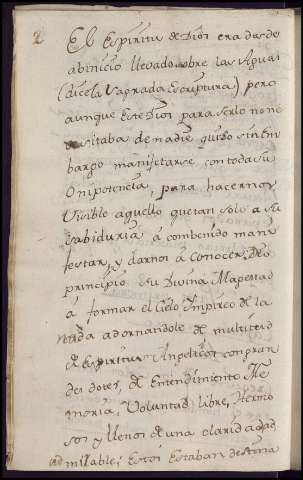 2 El Espiritu de Dios era desde
abinicio llevado sobre las Aguas
(dice la Sagrada Escriptura) pero
aunque Este Dios para serlo no ne
cesitaba de nadie quiso sin Em
bargo manifestarse con toda su
Onipotencia, para hacernos
Visible aquello que tan solo a su
sabiduria á combenido mani
festar, y darnos à conocer. Dió
principio su Divina Magestad
á formar el Cielo Impireo de la
nada adornandole de multitud
de Espiritus Angelicos con gran
des dotes, de Entendimiento Me
moria, Voluntad libre, Hermo
sos y llenos de una claridad ad
admirable; Estos Estaban destina